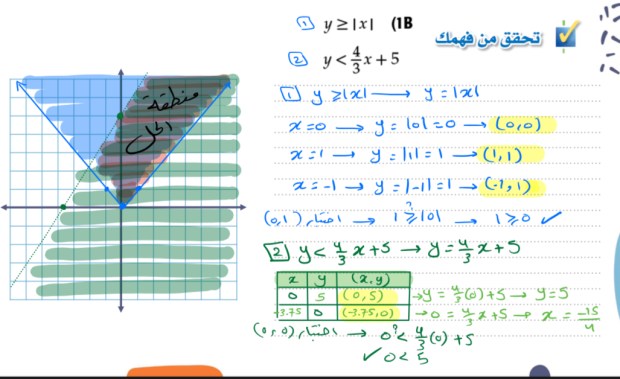 تحقق من فهمك
(1B
① y ≥ |x|
② y < 4/3 x + 5
منطقة الحل
1 y ≥ |x| → y = |x|
x=0 → y = |0| = 0 → (0,0)
x=1 → y = |1| = 1 → (1,1)
x=-1 → y = |-1| = 1 → (-1,1)
(0,1) اختبار → 1 ≥? |0| → 1 ≥ 0 ✓
2 y < 4/3 x + 5 → y = 4/3 x + 5
x y (x,y)
0 5 (0,5) → y = 4/3 (0) + 5 → y = 5
-3.75 0 (-3.75,0) → 0 = 4/3 x + 5 → x = -15/4
(0,0) اختبار → 0 <? 4/3 (0) + 5
✓ 0 < 5